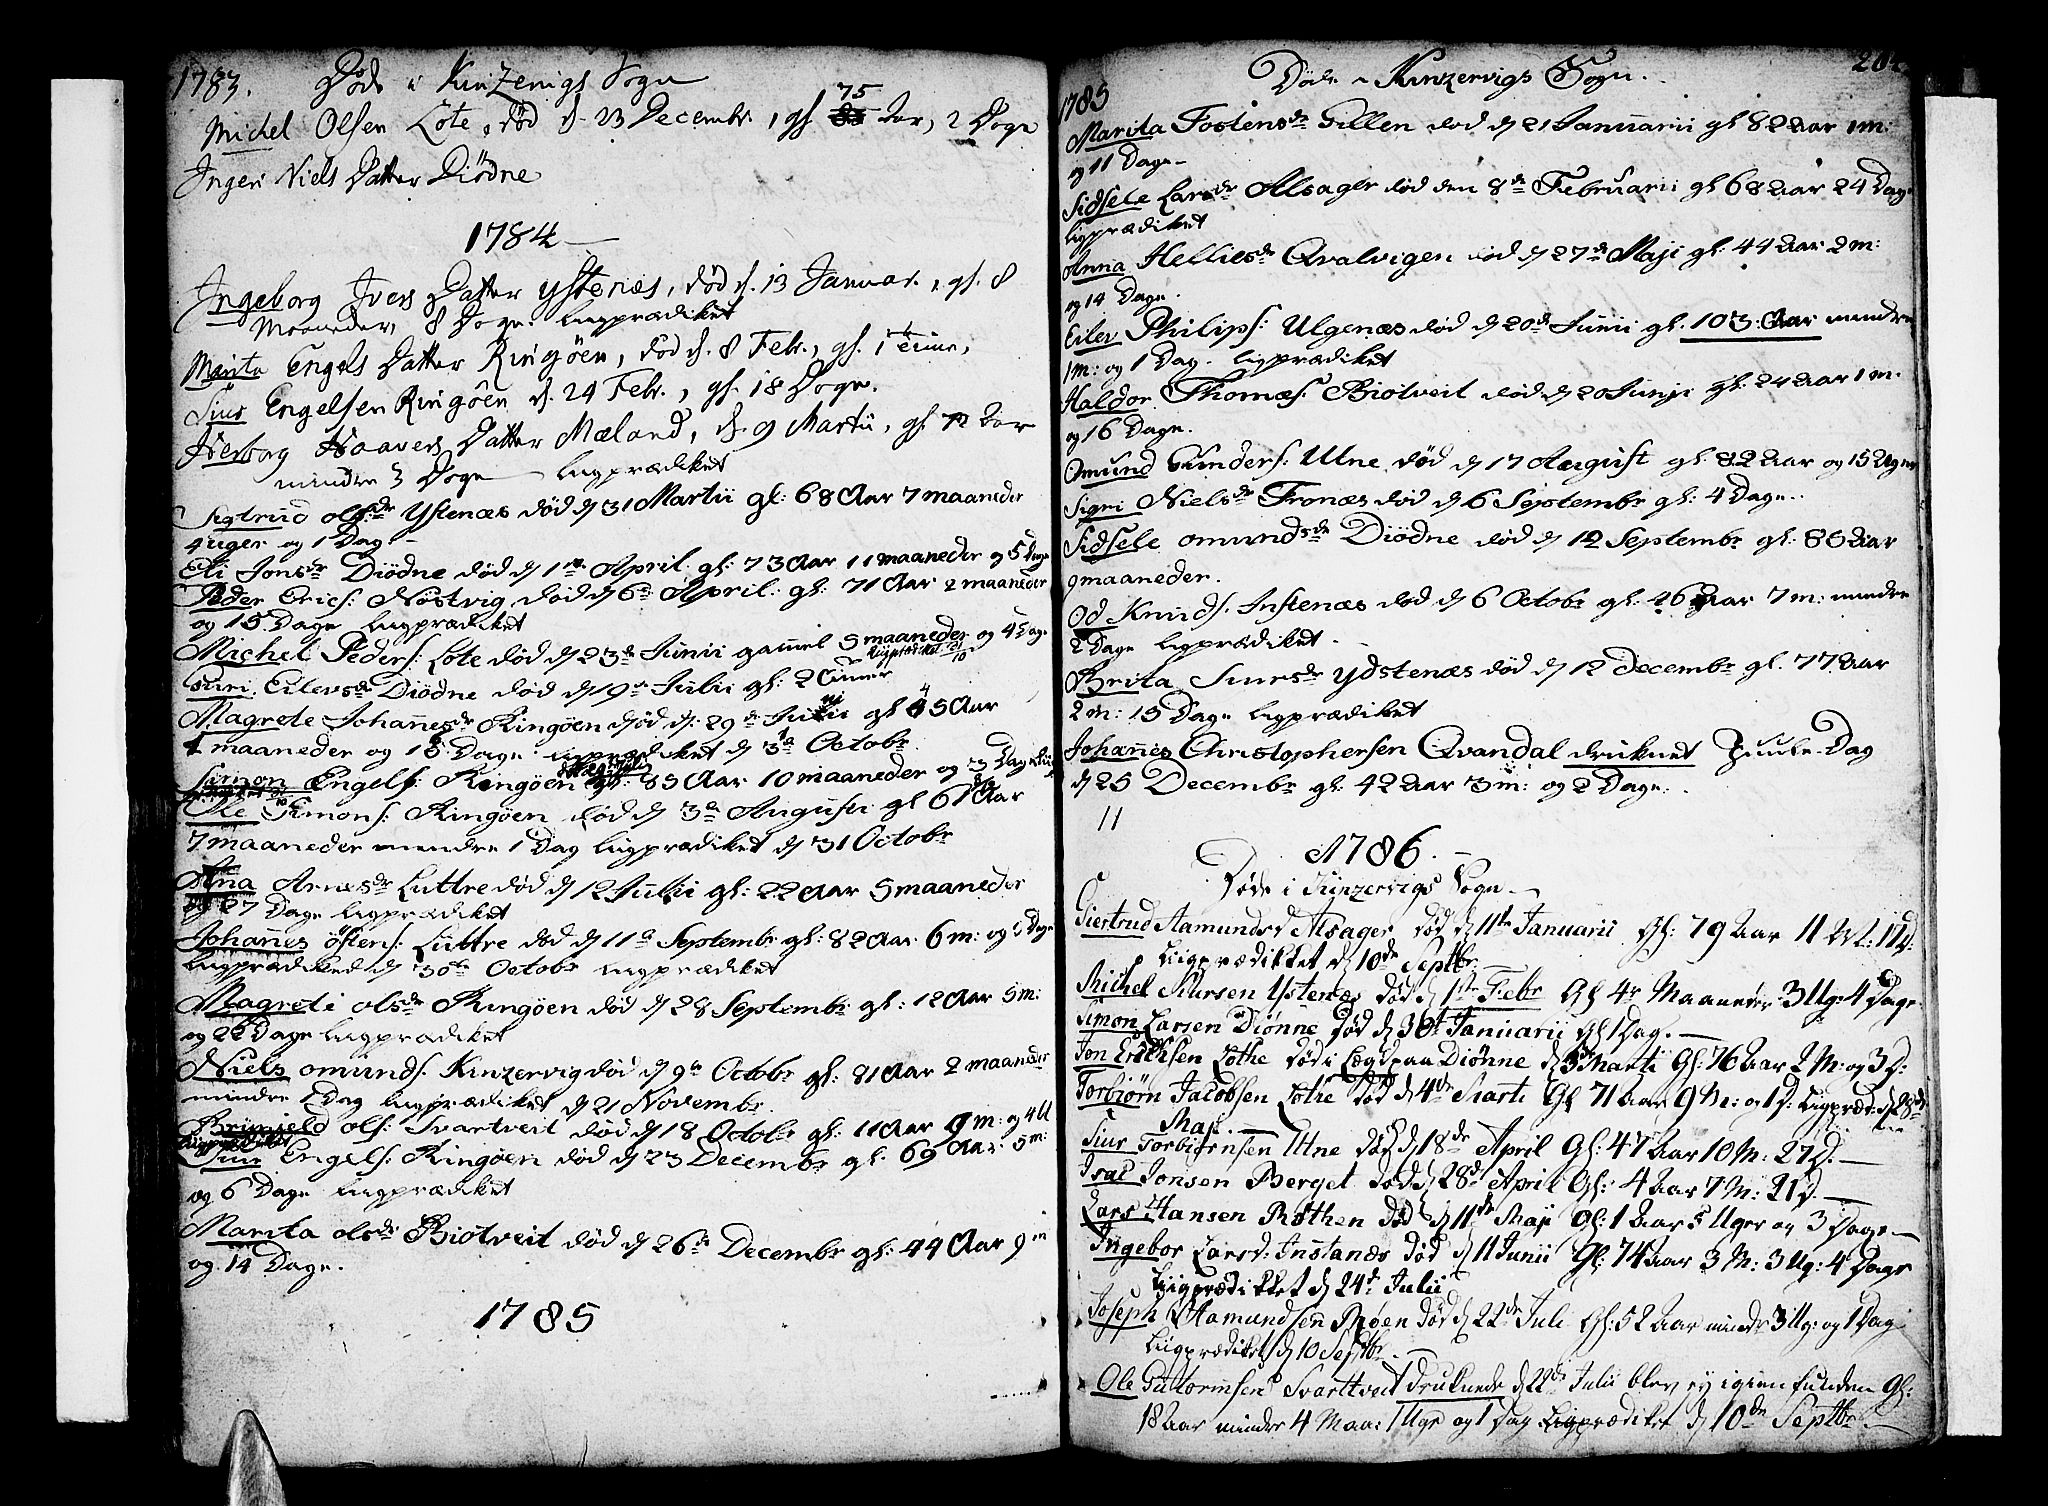 1783. Døde i Kinzervigs Sogn
75
Michel Olsen Lote, død d. 23 Decembr, gl. Aar, 2 Dage
Ingeri Niels Datter Diödne
1784
Ingeborg Ivers Datter Ystenæs, død d. 13 Januar., gl. 8
Maaneder, 8 Dage. Liigprædiket
Marita Engels Datter Ringöen, død d. 8 Febr., gl. 1 Time,
Siur Engelsen Ringöen d. 24 Febr., gl. 18 Dage.
Herborg Haavers Datter Mæland, d. 9 Martii, gl. 72 Aar
mindre 3 Dage Liigprædiket
Sigtrud olsdr Ystenæs død d 31 Martii gl: 68 Aar 7 maaneder
4 uger og 1 Dag
Eli Jonsdr Diödne død d 1ste April gl: 73 Aar 11 maaneder og 5 Dage
Peder Erics: Nöstvig død d 6te April: gl: 71 Aar 2 maaneder
og 15 Dage Liigprædiket
Michel Peders: Lote død d 23de Junii gamel 5 maaneder og 4 Dage
Guri Eilevsdr Diödne død d 19de Julii gl: 2 Timer
Magrete Johañesdr Ringöen død d: 29de gl 45 Aar
maaneder og 18 Dage: Liigprædiket d 31 Octobr
Simon Engels: Ringöen gl: 85 Aar 10 maaneder og 3 Dage
Ole Simons: Ringöen død d 3de Augusti gl 61 Aar
7 maaneder mindre 1 Dag Liigprædiket d 31 Octobr
Aña Arnesdr Luttre død d 12 Julii gl: 22 Aar 5 maaneder
og 27 Dage Liigprædiket
Johañes östens: Luttre død d 11te Septembr gl: 82 Aar 6 m: og Dage
Liigprædiked d 30te Octobr Liigprædiket
Magreti olsdr Ringöen død d 28 Septembr gl: 12 Aar 5 m:
og 22 Dage Liigprædiket
Niels omunds: Kinzervig død d 9de Octobr gl: 81 Aar 2 maaneder
mindre 1 Dag Liigprædiket d 21 Novembr.
Brinjeld ols: Svartveit død d 18 Octobr gl: 11 Aar 9 m: og 4 U
Liigprædiket
Siur Engels: Ringöen død d 23 Decembr gl. 69 Aar 5 m:
og 6 Dage Liigprædiket
Marita olsdr Biotveit død d 26de Decembr gl: 44 Aar 9 m
og 14 Dage.
1785
204
Døde i Kinzervigs Sogn.
1785
Marita Tostensdr Gillen død d 21 Januarii gl 82 Aar 1 m:
og 11 Dage
Sidsele Larsdr Alsager død den 8de Februarii gl 68 Aar 24 Dage
Liigprædiket
Anna Helliesdr Qvalvigen død d 27de Maji gl: 44 Aar 2 m:
og 14 Dage.
Eilev Philips: Ulgenæs død d 20de Junii gl. 103 Aar mindre
1 m: og 1 Dag. Liigprædiket
Haldor Thomæs: Biotveit død d 20 Junji gl: 24 Aar 1 m.
og 16 Dage.
Omund Gunders: Utne død d 17 August gl: 82 Aar og 15 Uger
Sigri Nielsdr Tronæs død d 6 Septembr gl: 4 Dage.
Sidsele omundsdr Diödne død d 12 Septembr gl: 86 Aar
9 maaneder.
Od Knuds: Instenæs død d 6 Octobr gl: 46 Aar 7 m: mindre
2 Dage Liigprædiket
Brita Siursdr Ydstenæs død d 12 Decembr gl. 77 Aar
2 m: 15 Dage Liigprædiket
Johañes Christophersen Qvandal druknet Juule-Dag
d 25 Decembr gl: 42 Aar 3 m: og 2 Dage.
11
1786.
Døde i Kinzervigs Sogn
Giertrud Aamundsd Alsager død d 11te Januarii Gl: 79 Aar 11 M: 11 D:
Liigprædikket d 10de Septbr
Michel Siursen Ystenæs død d 1ste Febr Gl 4r Maaneder 3 Ug: 4 Dage
Simon Larsen Diønne død d 30t Januarii Gl 1 Dag.
Jon Erichsen Lothe død i Lægd paa Diønne d 3de Marti Gl: 76 Aar 2 M: og 3 D:
Torbiørn Jacobsen Lothe død d 4de Marti Gl 71 Aar 9 M: og 1 D: Liigpræd: d 28de
Maji
Siur Torbiørnsen Utne død d 18de April Gl: 47 Aar 10 M: 27 D.
Isac Jonsen Berget død d 28de April Gl: 4 Aar 7 M: 21 D.
Lars Hansen Røthen død d 11te Maji Gl: 1 Aar 5 Uger og 3 Dage
Ingebor Larsd: Instanæs død d 11 Junii Gl: 74 Aar 3 M: 3 Ug: 4 Dage
Liigprædikket d 24de Julii
Joseph Aamundsen Røen død d 22de Juli Gl: 52 Aar mindr 3 Ug: og 1 Dag
Liigprædiket d 10 Septbr.
Ole Guttormsen Svarttveit Druknede d 22de Julii blev ey igien funden Gl:
18 Aar mindre 4 Maa: 1 Uge og 1 Dag Liigprædiket d 10de Septbr